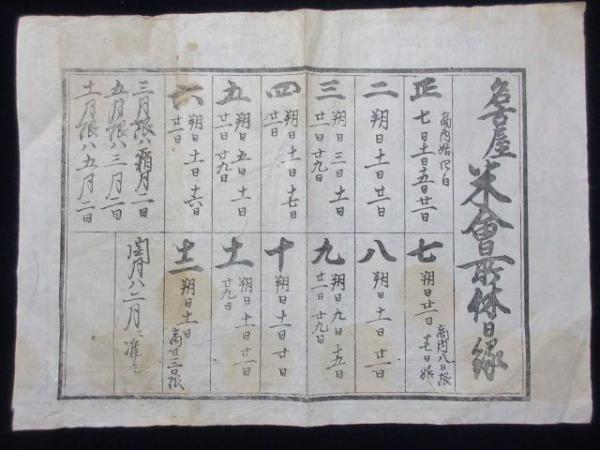 名古屋米會所休日録
正
七日 十一日 五日 廿一日
二
朔日 十一日 廿一日
三
朔日 三日 十一日
廿一日 廿九日
四
朔日 十一日 十七日
廿一日
五
朔日 五日 十一日
廿一日 廿九日
六
朔日 十一日 十六日
廿一日
三月限ハ霜月二日
五月限ハ三月二日
十一月限ハ五月二日
七
朔日 廿一日
八
朔日 十一日 廿一日
九
朔日 九日 十五日
廿一日 廿九日
十
朔日 十一日 廿日
十一
朔日 十日 廿一日
廿九日
十二
朔日 十一日
閏月ハ二月ニ准